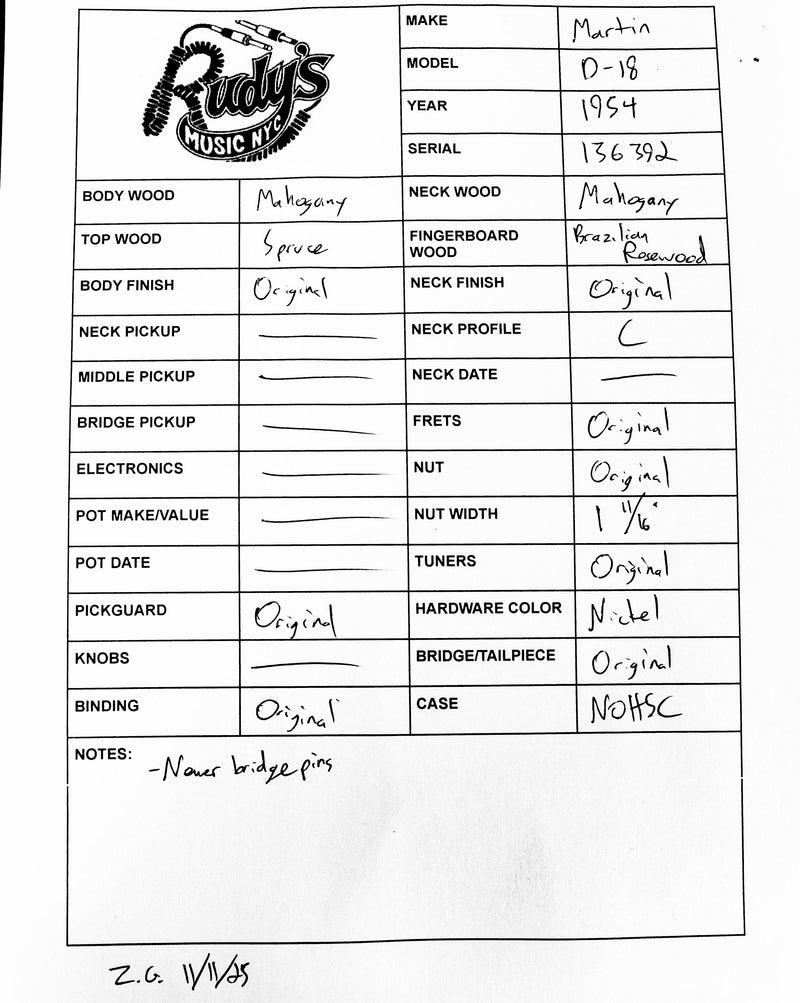 Rudy's
MUSIC NYC
MAKE Martin
MODEL D-18
YEAR 1954
SERIAL 136392
BODY WOOD Mahogany NECK WOOD Mahogany
TOP WOOD Spruce FINGERBOARD Brazilian
WOOD Rosewood
BODY FINISH Original NECK FINISH Original
NECK PICKUP — NECK PROFILE C
MIDDLE PICKUP — NECK DATE —
BRIDGE PICKUP — FRETS Original
ELECTRONICS — NUT Original
POT MAKE/VALUE — NUT WIDTH 1 11/16"
POT DATE — TUNERS Original
PICKGUARD Original HARDWARE COLOR Nickel
KNOBS — BRIDGE/TAILPIECE Original
BINDING Original CASE NOHSC
NOTES: -Newer bridge pins
Z.G. 11/11/25